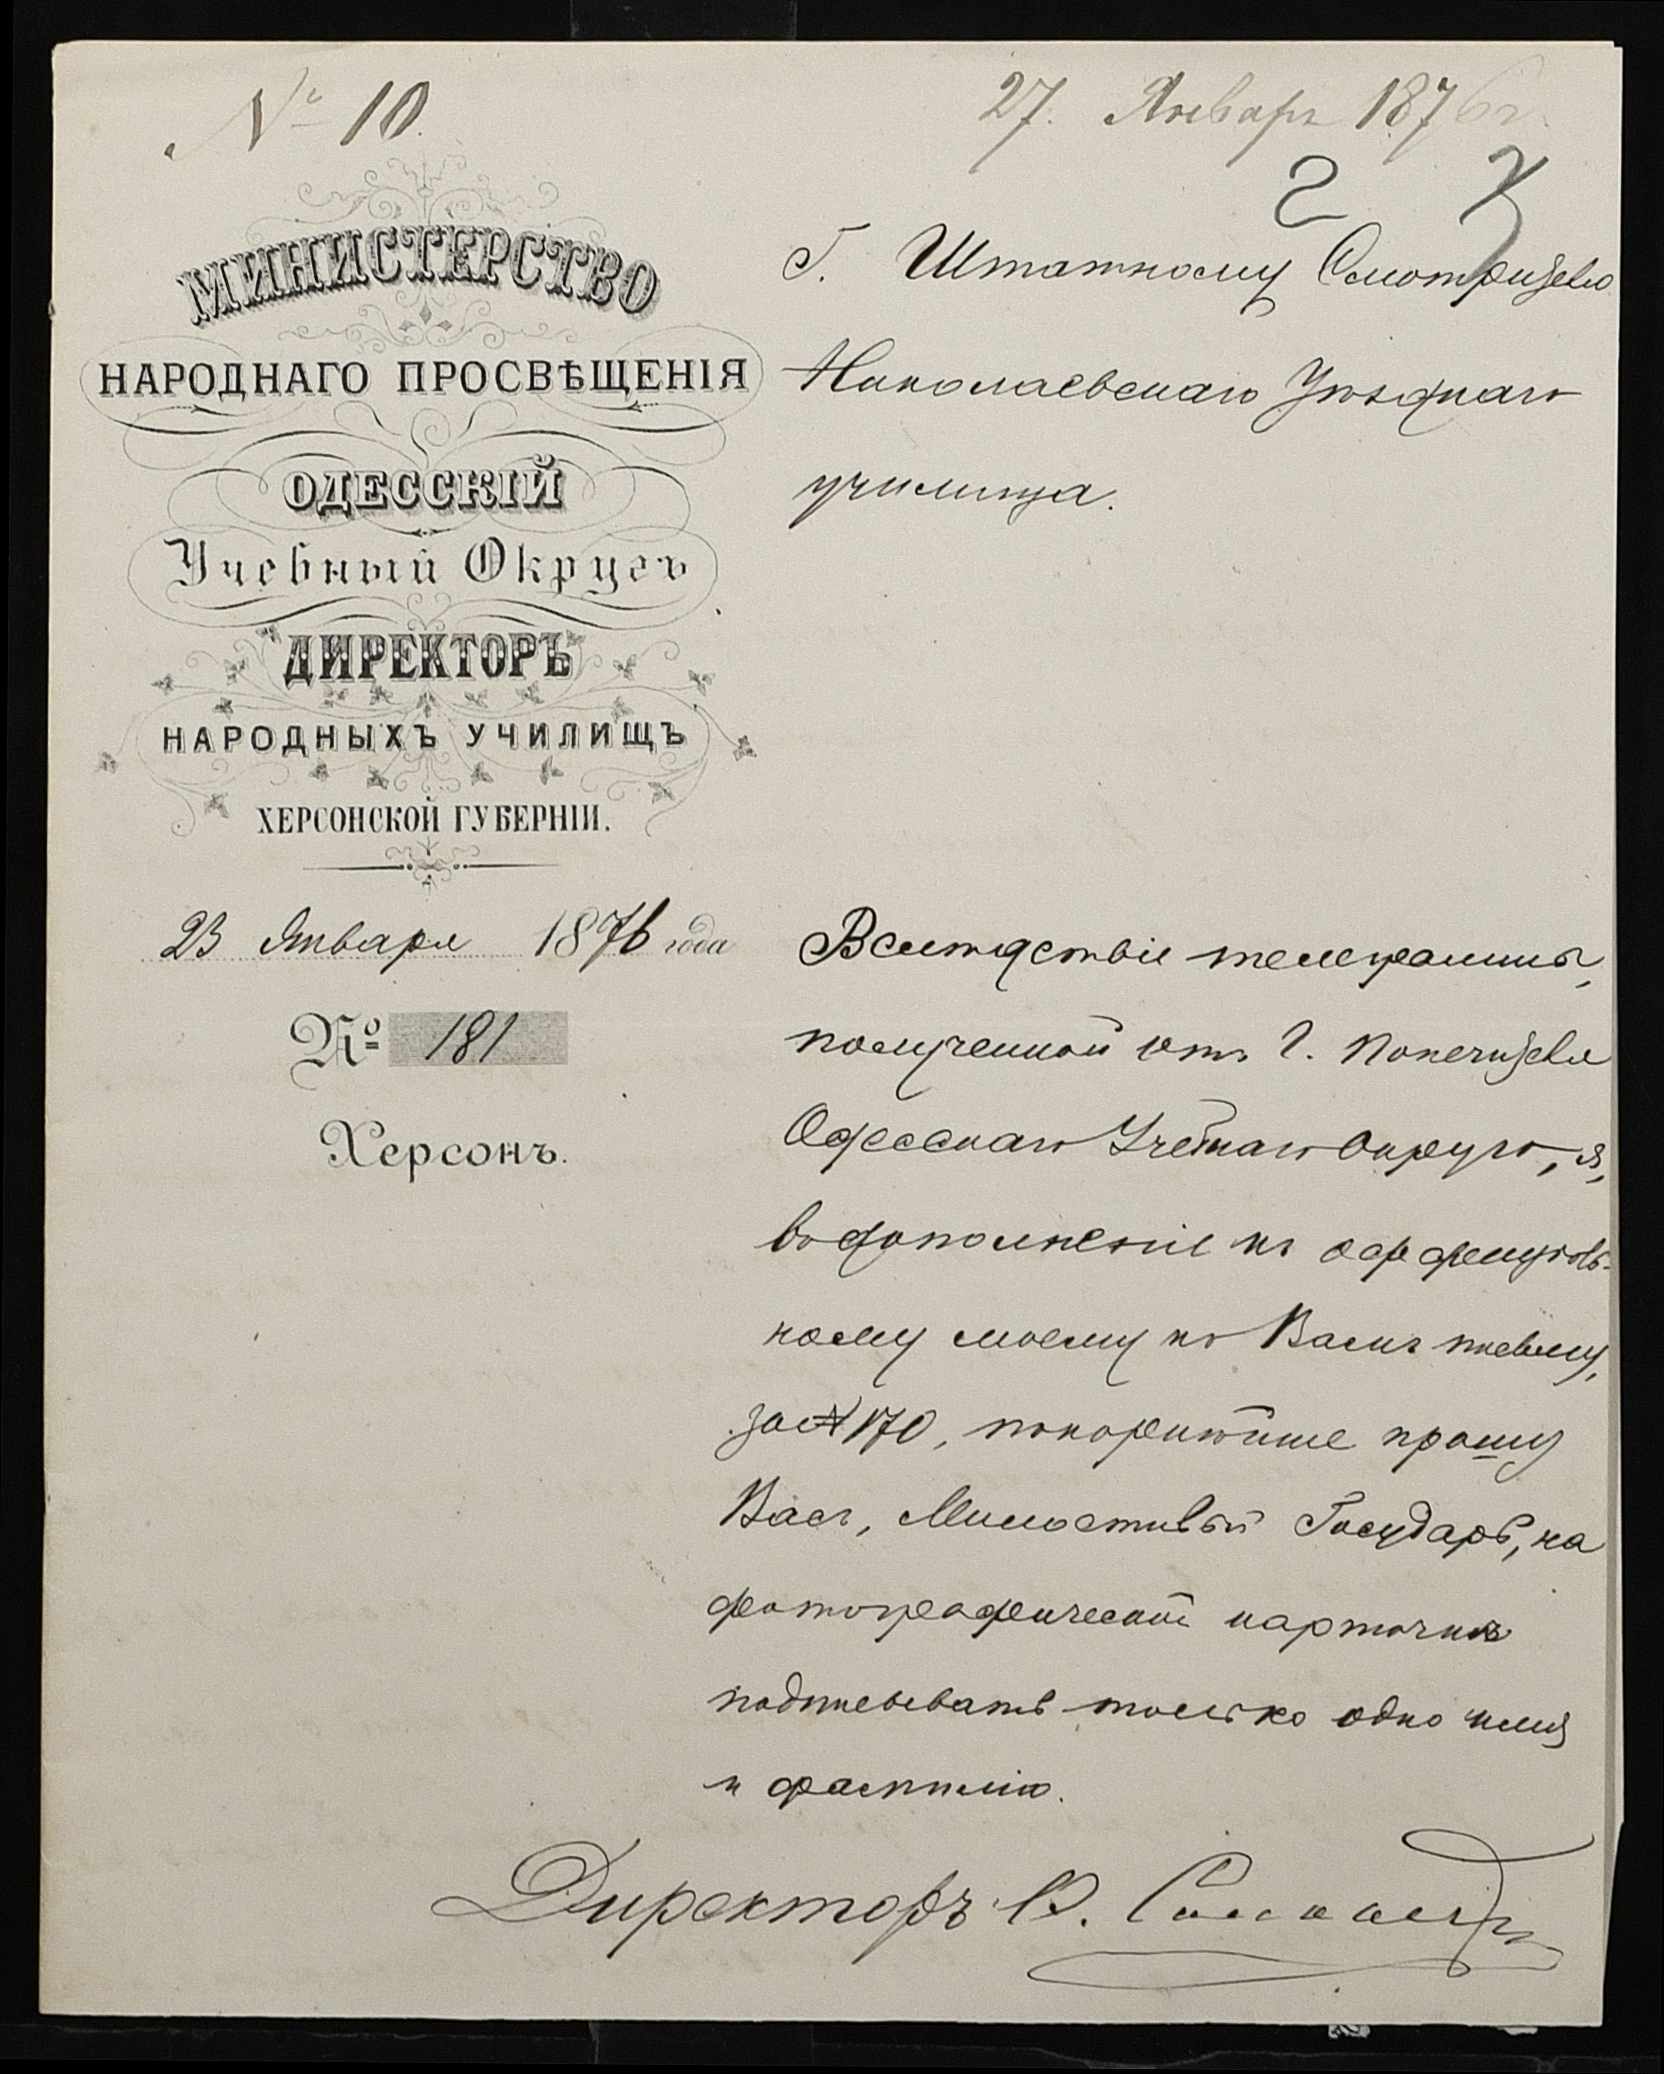 № 10.
27. Январь 1876 г.
2
Г. Штатному Смотрителю
Николаевскаго Уѣзднаго
училища.
МИНИСТЕРСТВО
НАРОДНАГО ПРОСВѢЩЕНІЯ
ОДЕССКІЙ
Учебный Округъ
ДИРЕКТОРЪ
НАРОДНЫХЪ УЧИЛИЩЪ
ХЕРСОНСКОЙ ГУБЕРНІИ.
23 Января 1876 года
№ 181
Херсонъ.
Вслѣдствіе телеграммы,
полученной отъ Г. Попечителя
Одесскаго Учебнаго Округа, я,
въ дополненіе къ оффиціаль-
ному моему къ Вамъ письму,
за № 170, покорнѣйше прошу
Васъ, Милостивый Государь, на
фотографической карточкѣ
подписывать только одно имя
и фамилію.
Директоръ